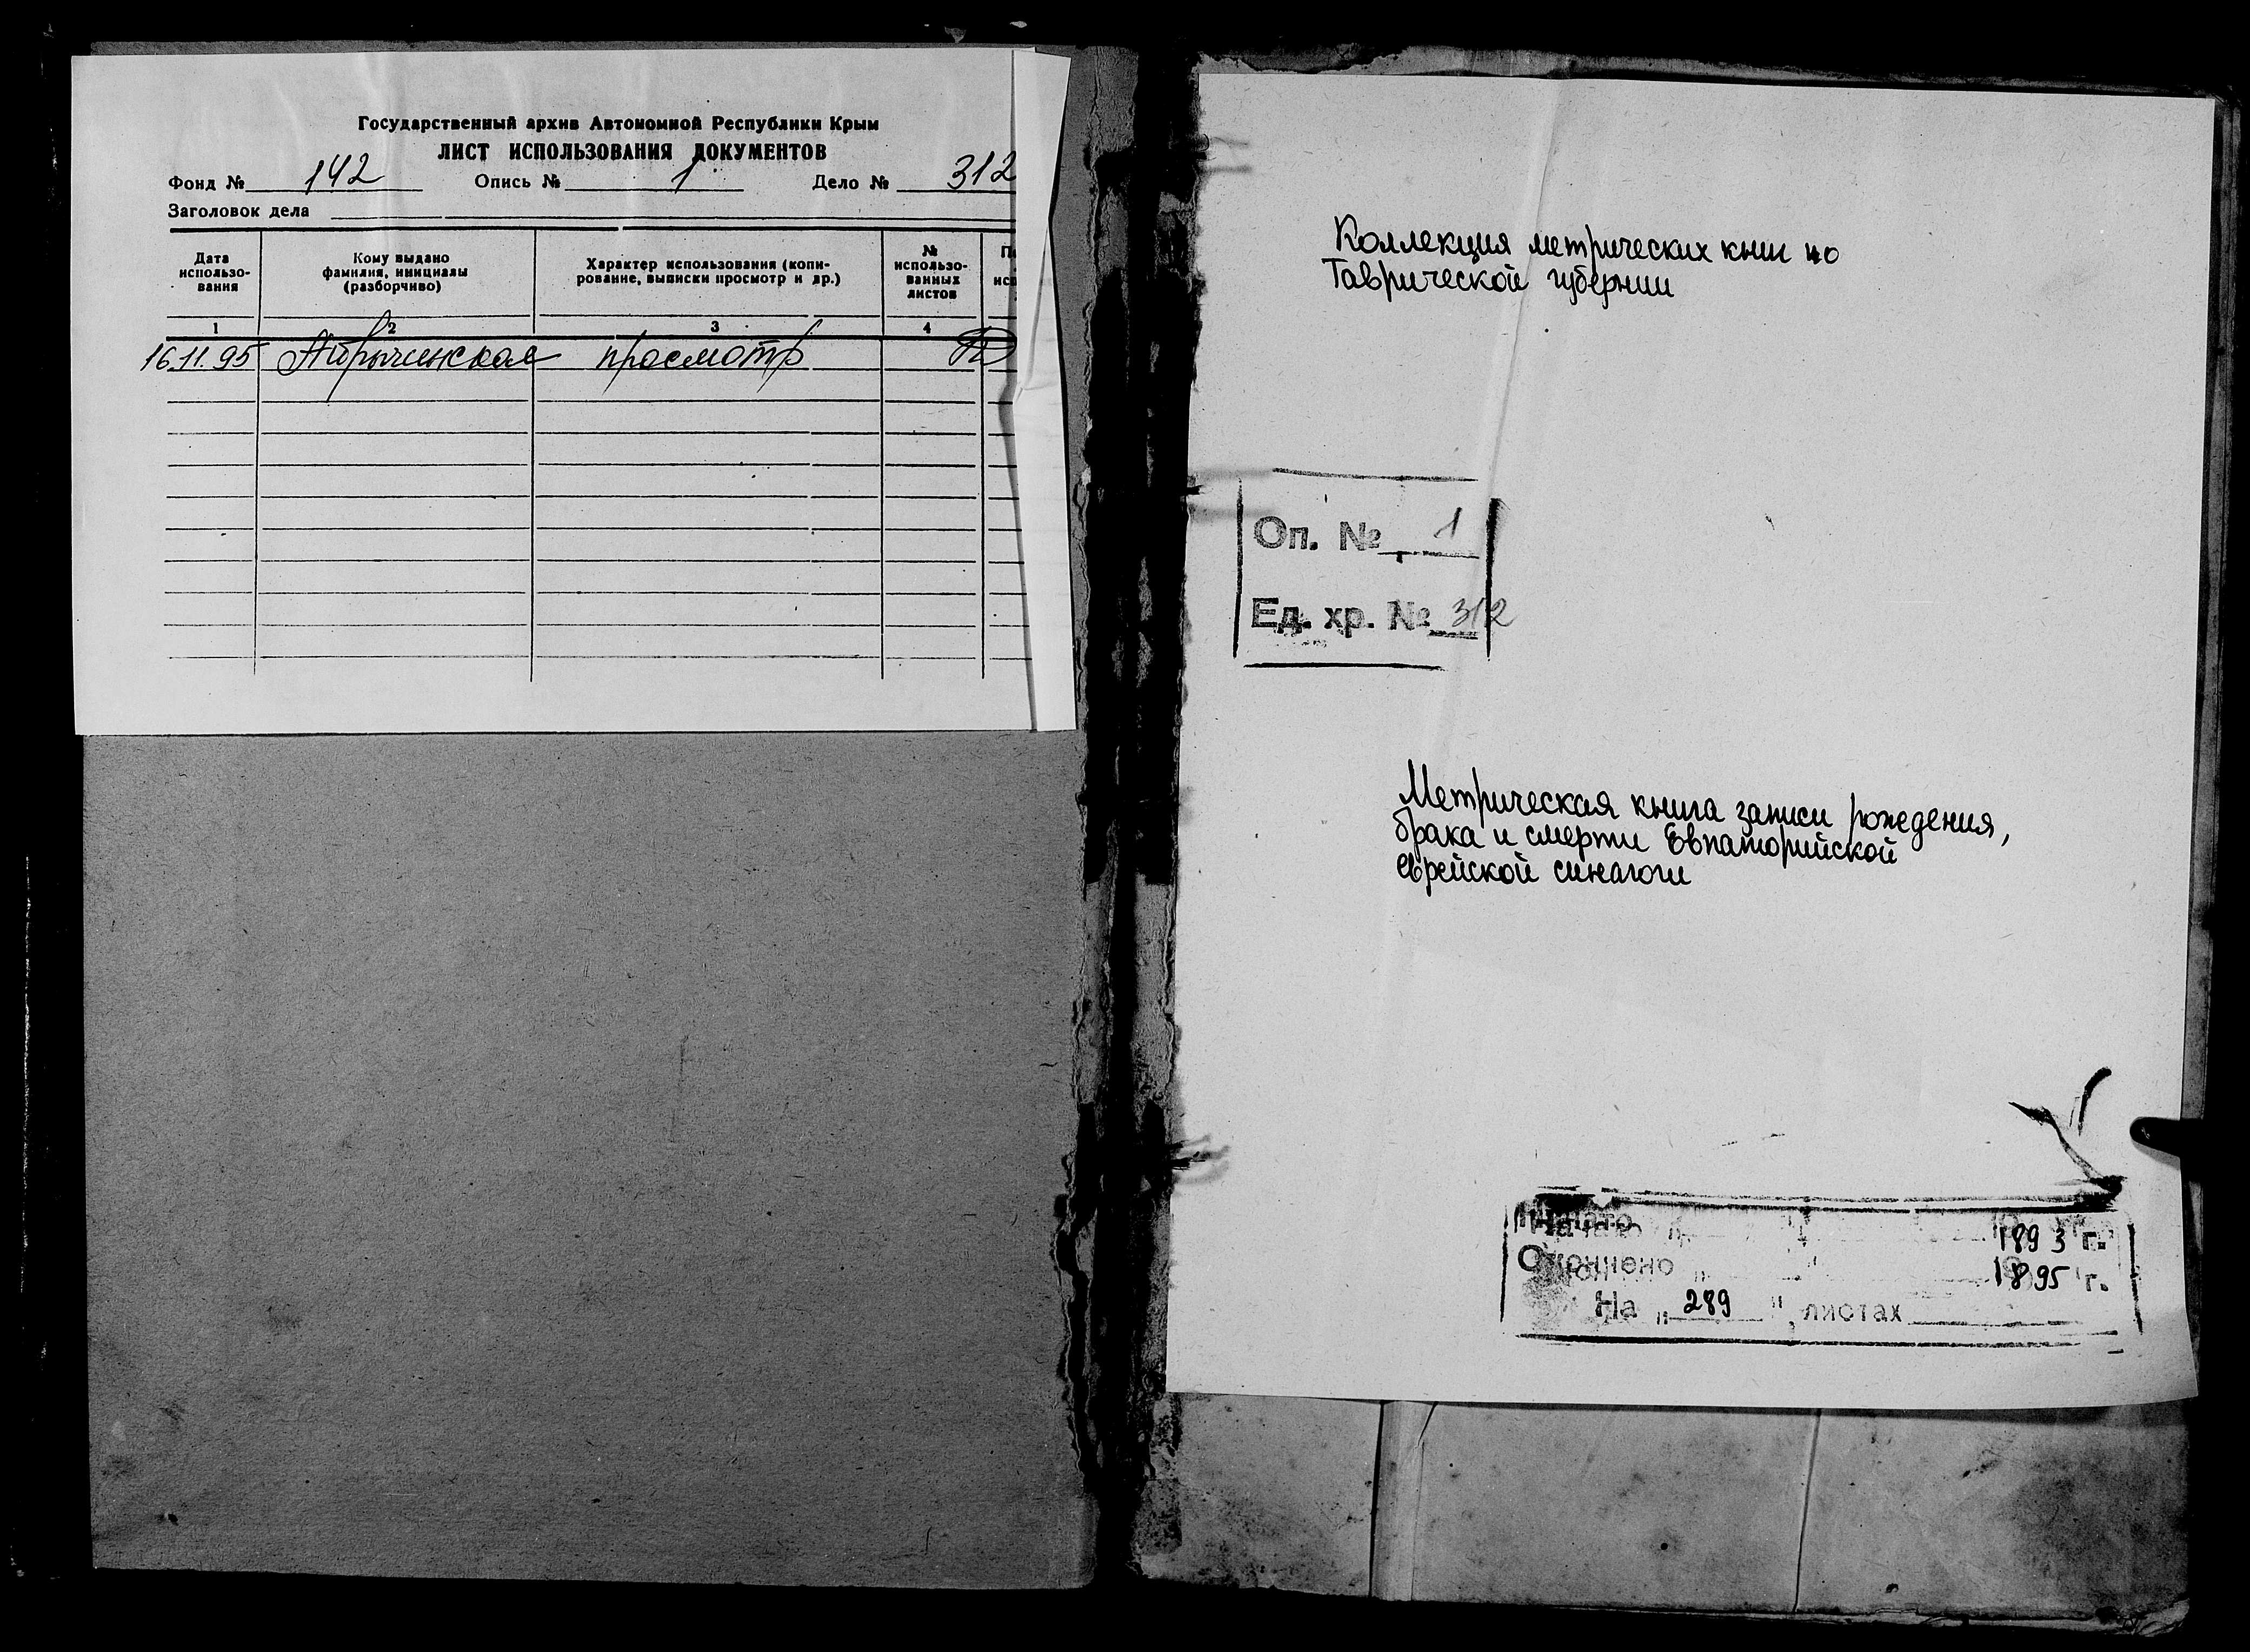 Государственный архив Автономной Республики Крым
ЛИСТ ИСПОЛЬЗОВАНИЯ ДОКУМЕНТОВ
Фонд № 142 Опись № 1 Дело № 312
Заголовок дела
Дата использо-вания
Кому выдано фамилия, инициалы (разборчиво)
Характер использования (копи-рование, выписки просмотр и др.)
№ использо-ванных листов
1 2 3 4
16.11.95 просмотр
Коллекция метрических книг по
Таврической губернии
Оп. № 1
Ед. хр. № 312
Метрическая книга записи рождения,
брака и смерти Евпаторийской
еврейской синагоги
Начато 1893 г.
Окончено 1895 г.
На „ 289 " листах